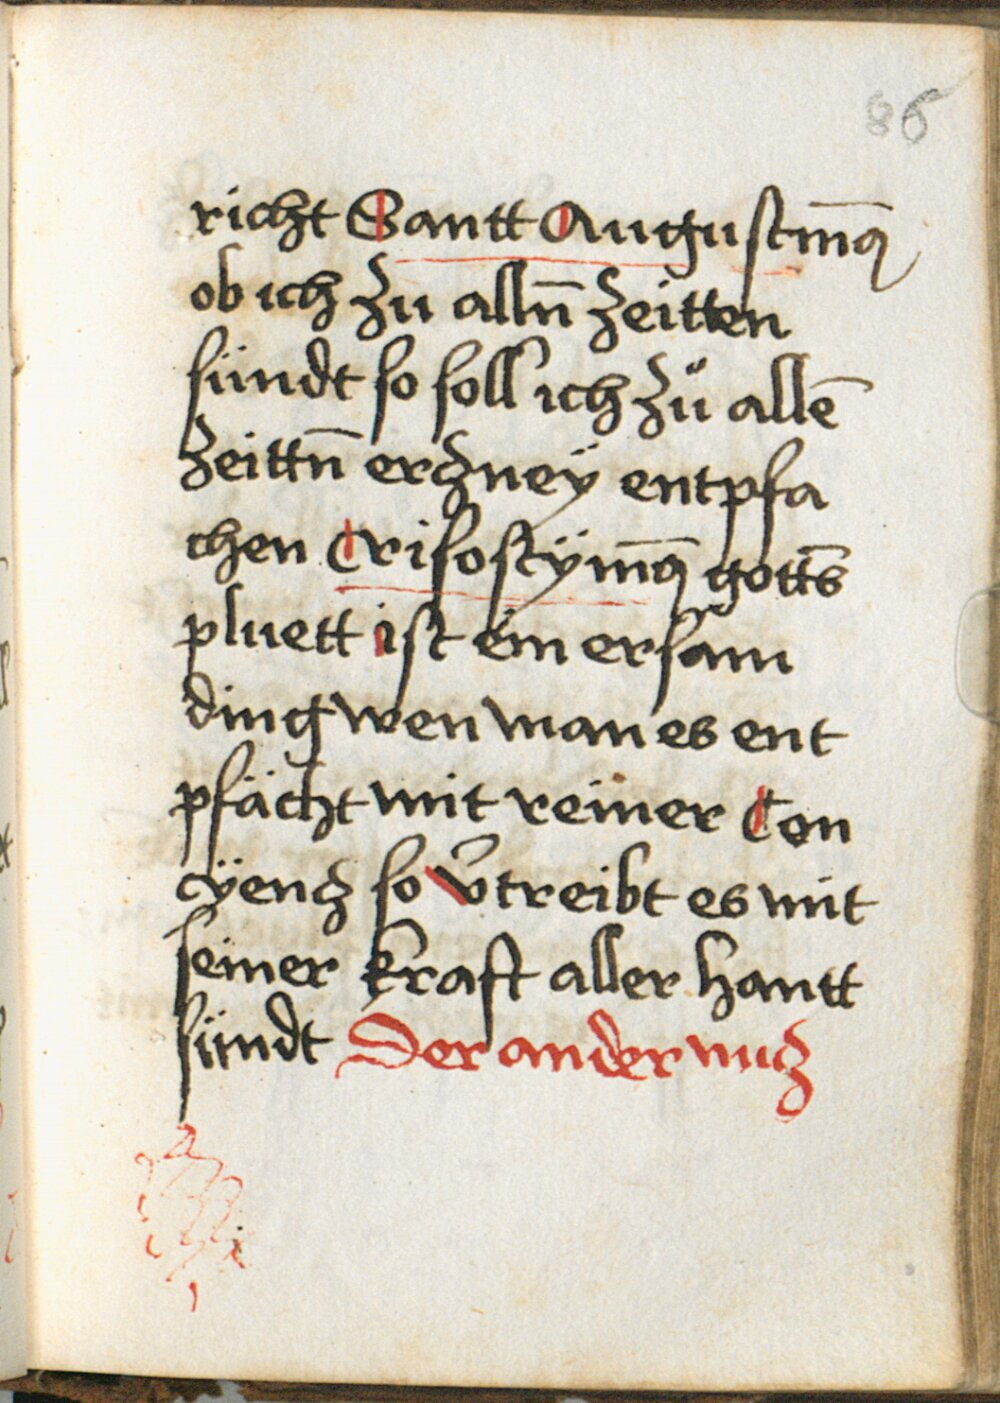 86
richt Santt Augustin̄ꝯ
ob ich zu alln̄ zeitten
sündt so soll ich zů allē
zeittn̄ erzney entpfa
chen Crisostÿm̄ꝯ gott̄s
pluett ist ein ersam
ding wen man es ent
pfächt mit reiner Con
cÿenz so v̄treibt es mit
seiner kraft aller hantt
sündt Der ander nucz